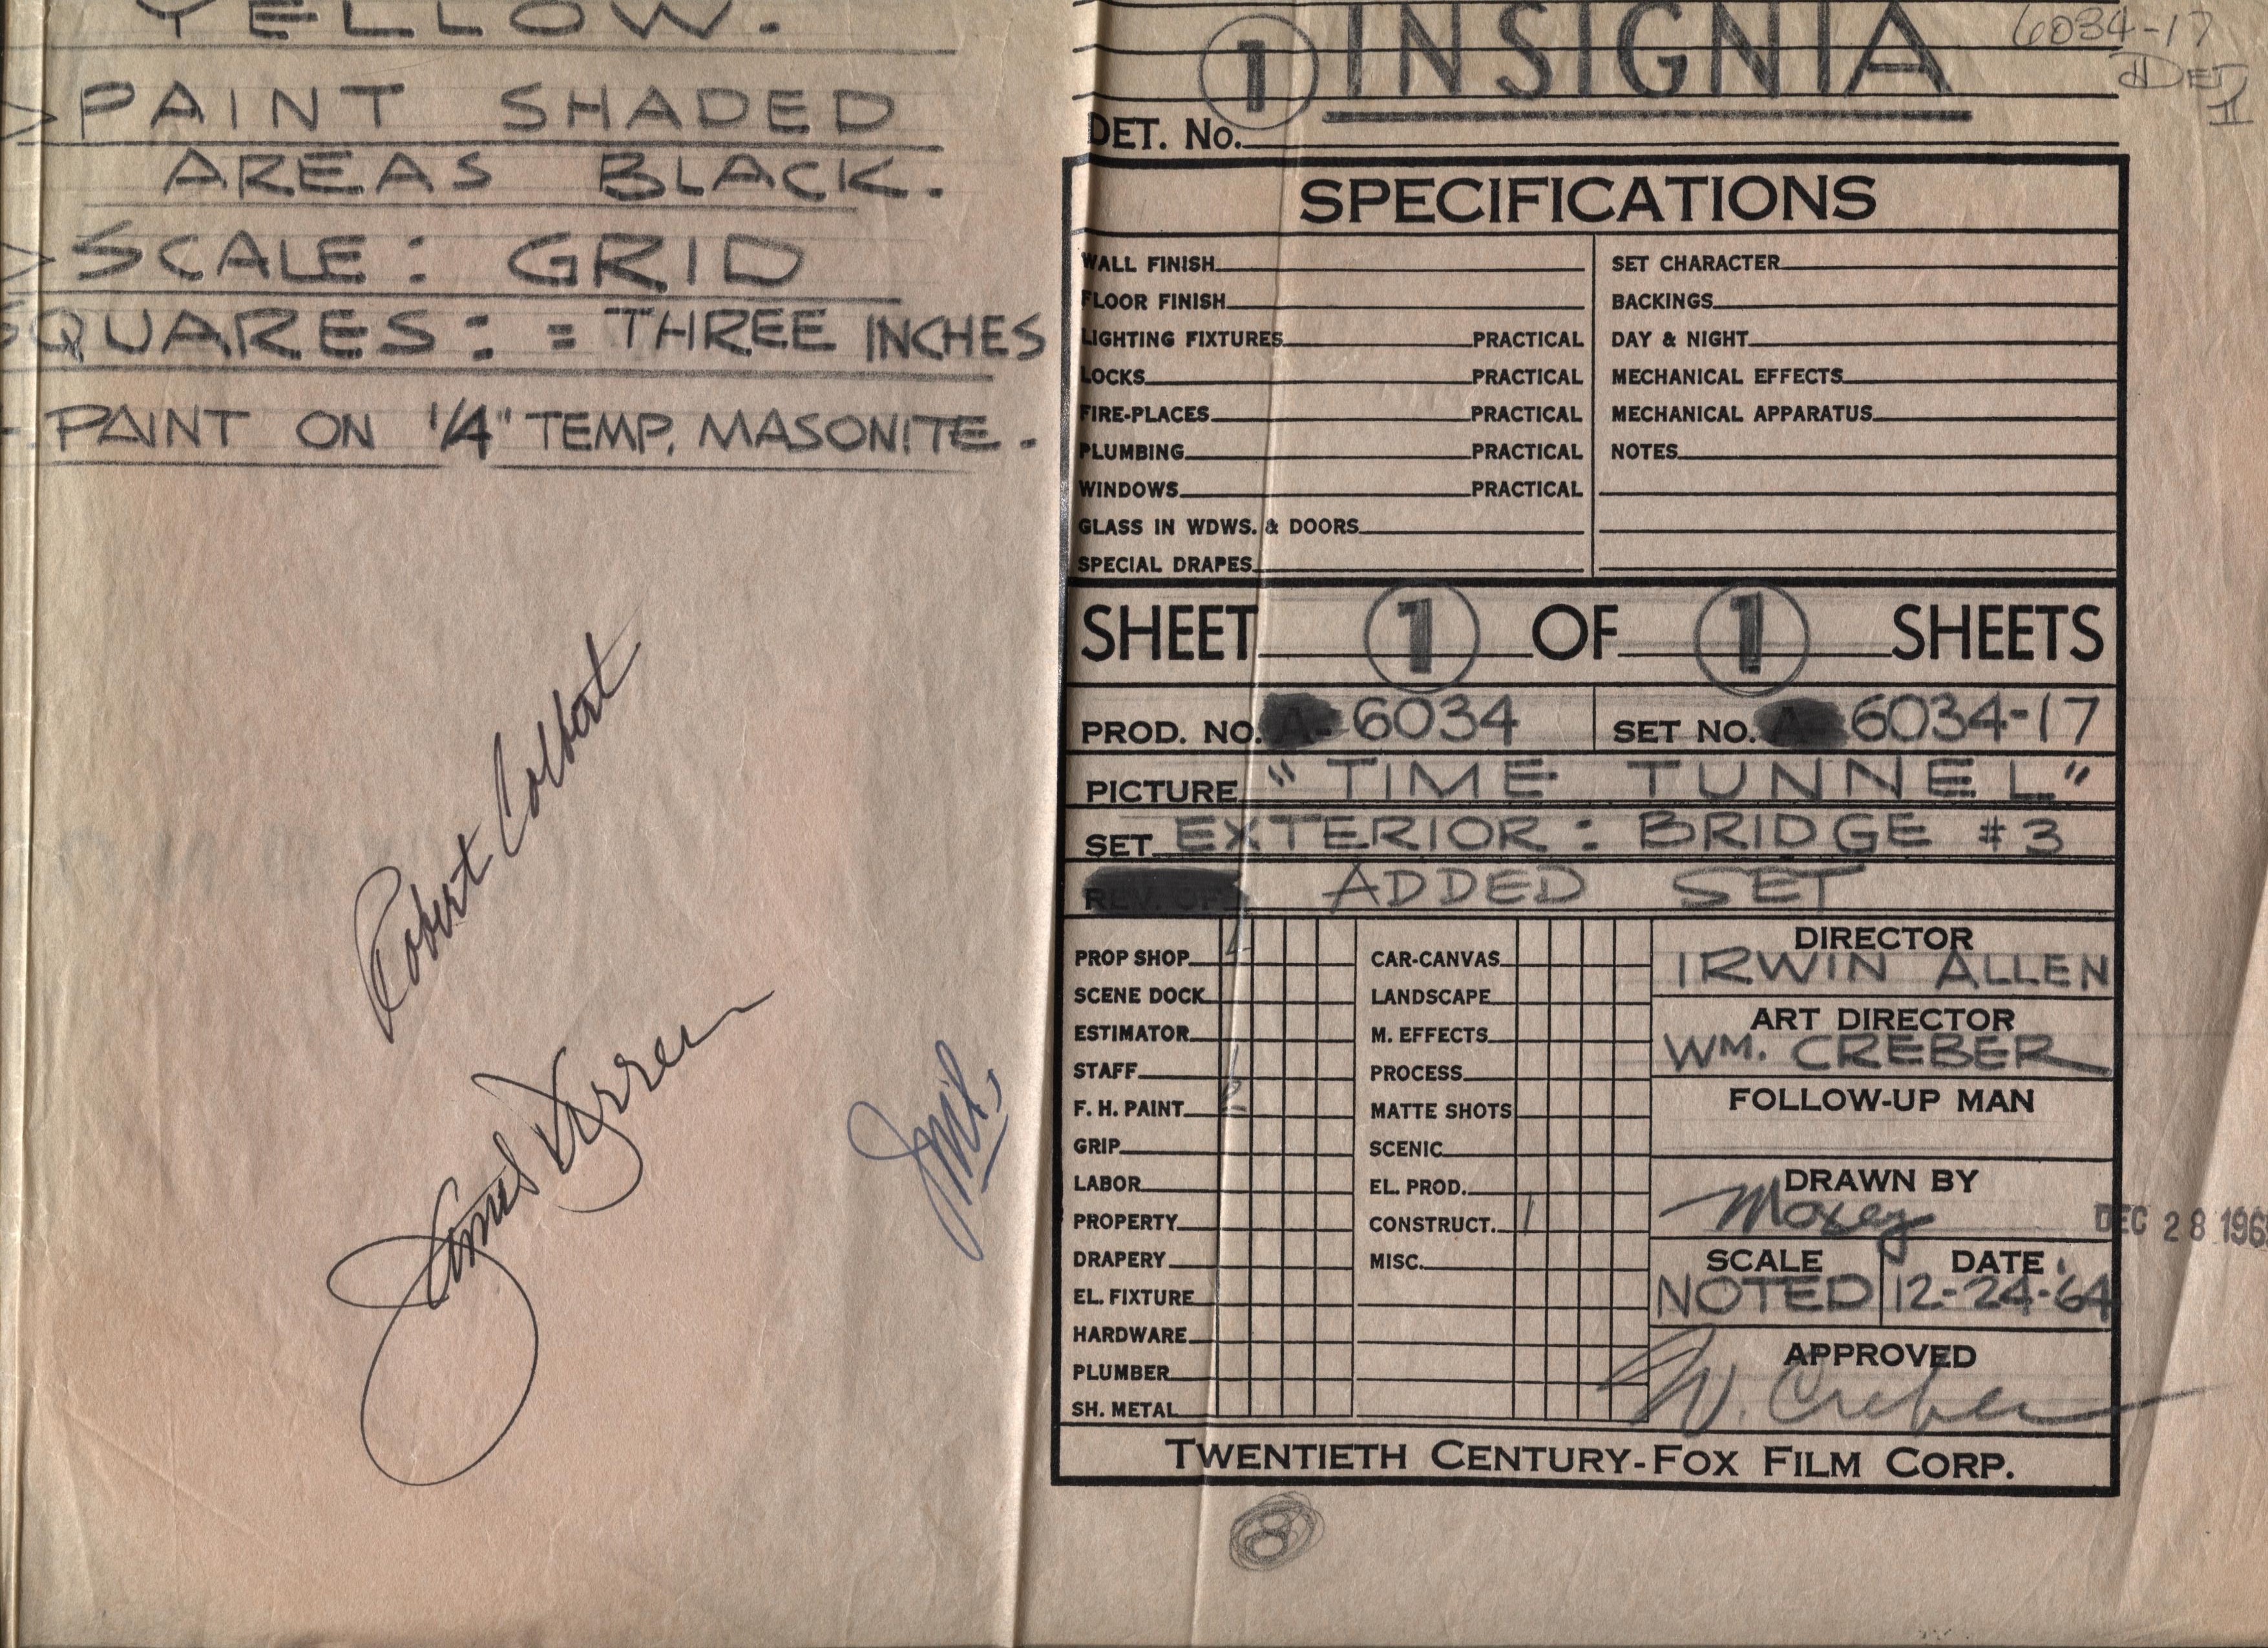 YELLOW.
PAINT SHADED
AREAS BLACK.
SCALE: GRID
SQUARES: = THREE INCHES
PAINT ON 1/4" TEMP. MASONITE.
Robert Colbert
James Darren
6034-17
DET
1 INSIGNIA
DET. No.
SPECIFICATIONS
WALL FINISH
FLOOR FINISH
LIGHTING FIXTURES PRACTICAL
LOCKS PRACTICAL
FIRE-PLACES PRACTICAL
PLUMBING PRACTICAL
WINDOWS PRACTICAL
GLASS IN WDWS. & DOORS
SPECIAL DRAPES
SET CHARACTER
BACKINGS
DAY & NIGHT
MECHANICAL EFFECTS
MECHANICAL APPARATUS
NOTES
SHEET 1 OF 1 SHEETS
PROD. NO. A- 6034
SET NO. A- 6034-17
PICTURE "TIME TUNNEL"
SET EXTERIOR: BRIDGE #3
REV. OF ADDED SET
PROP SHOP
SCENE DOCK
ESTIMATOR
STAFF
F. H. PAINT 2
GRIP
LABOR
PROPERTY
DRAPERY
EL. FIXTURE
HARDWARE
PLUMBER
SH. METAL
CAR-CANVAS
LANDSCAPE
M. EFFECTS
PROCESS
MATTE SHOTS
SCENIC
EL. PROD.
CONSTRUCT. 1
MISC.
DIRECTOR
IRWIN ALLEN
ART DIRECTOR
WM. CREBER
FOLLOW-UP MAN
DRAWN BY
Moxey
DEC 28 196
SCALE
NOTED
DATE
12-24-64
APPROVED
W. Creber
TWENTIETH CENTURY-FOX FILM CORP.
8